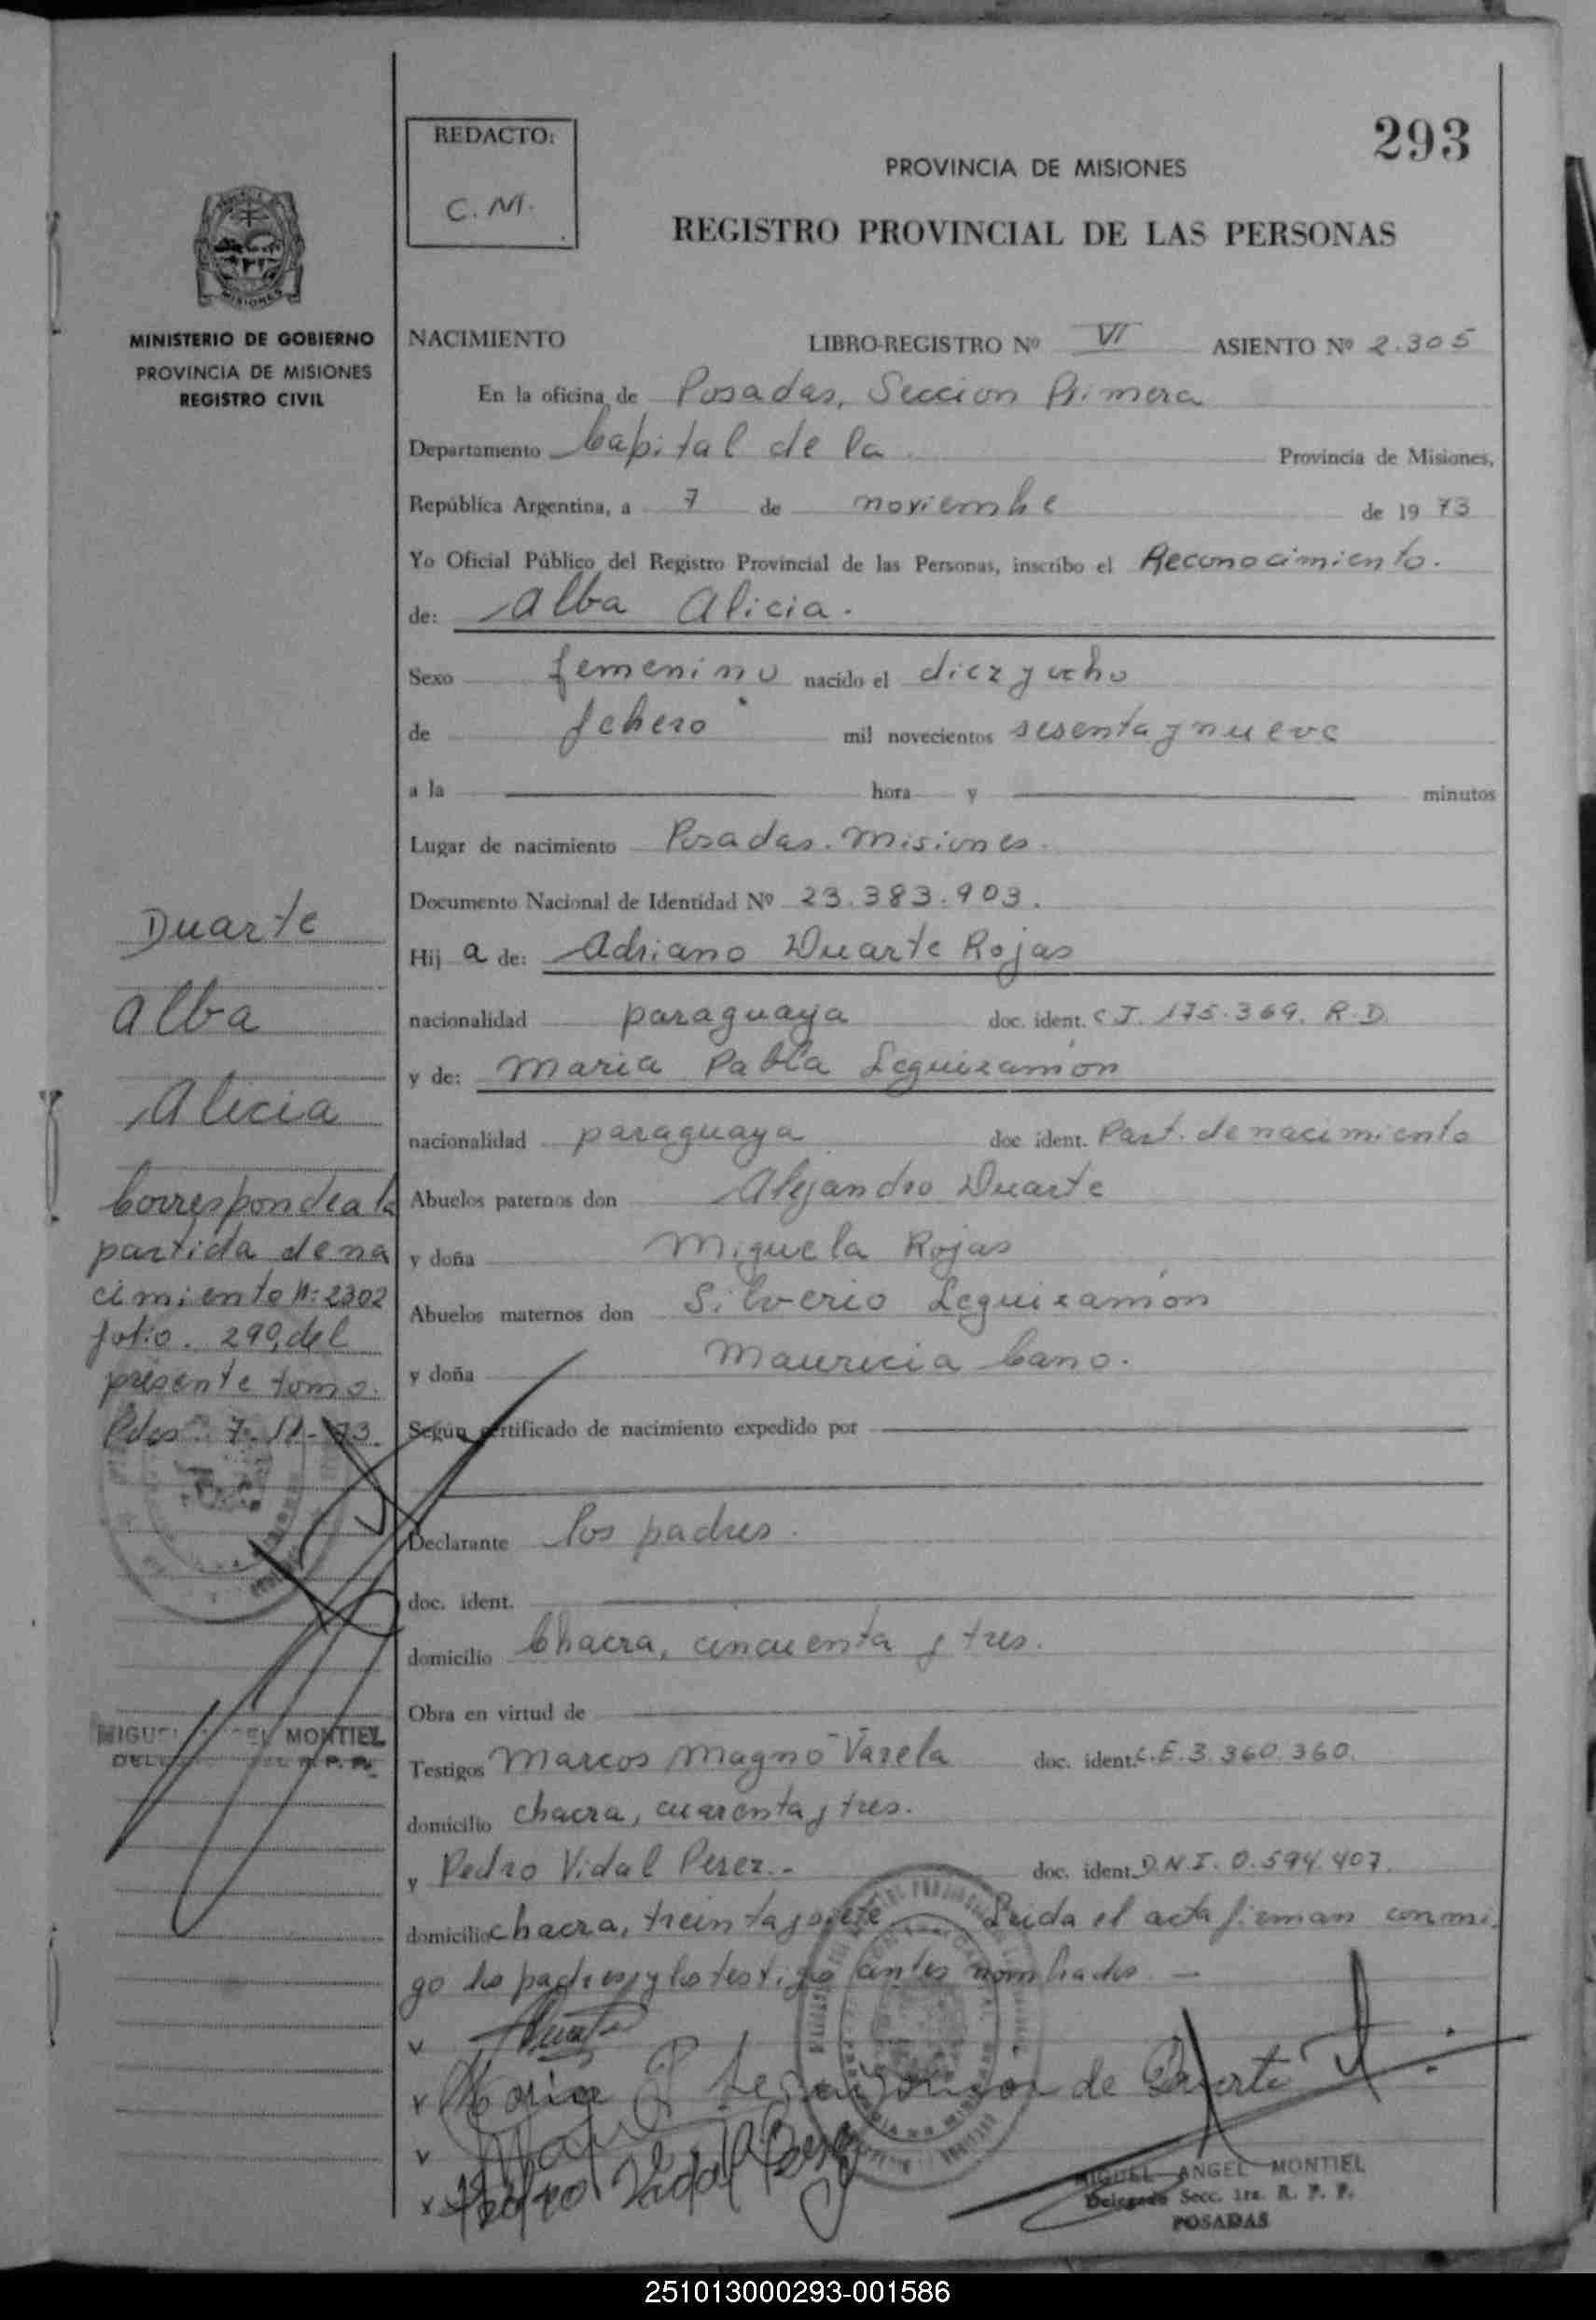 293
REDACTO:
C. M.
PROVINCIA DE MISIONES
REGISTRO PROVINCIAL DE LAS PERSONAS
MISIONES
MINISTERIO DE GOBIERNO
PROVINCIA DE MISIONES
REGISTRO CIVIL
NACIMIENTO LIBRO-REGISTRO Nº VI ASIENTO Nº 2.305
En la oficina de Posadas, Seccion Primera
Departamento Capital de la Provincia de Misiones,
República Argentina, a 7 de noviembre de 19 73
Yo Oficial Público del Registro Provincial de las Personas, inscribo el Reconocimiento.
de: Alba Alicia.
Sexo femenino nacido el diez y ocho
de febrero mil novecientos sesenta y nueve
a la hora y minutos
Lugar de nacimiento Posadas. Misiones.
Documento Nacional de Identidad Nº 23.383.903.
Hij a de: Adriano Duarte Rojas
nacionalidad paraguaya doc. ident. C I. 175.369. R.D.
y de: Maria Pabla Leguizamón
nacionalidad paraguaya doc ident. Part. de nacimiento
Abuelos paternos don Alejandro Duarte
y doña Miguela Rojas
Abuelos maternos don Silverio Leguizamón
y doña Mauricia Cano.
Según certificado de nacimiento expedido por
Declarante los padres.
doc. ident.
domicilio Chacra, cincuenta y tres.
Obra en virtud de
Testigos Marcos Magno Varela doc. ident. C.E. 3.360.360.
domicilio chacra, cuarenta y tres.
y Pedro Vidal Perez.- doc. ident. D.N.I. 0.594.407.
domicilio chacra, treinta y siete. Leida el acta firman conmi
go los padres y los testigos antes nombrados. —
Duarte
Maria P Leguizamón de Duarte
Pedro Vidal Perez
MIGUEL ANGEL MONTIEL
Delegado Secc. 1ra. R. P. P.
POSADAS
Duarte
Alba
Alicia
Corresponde a la
partida de na
cimiento Nº 2302
folio. 290, del
presente tomo.
Pdas 7-11-73.
MIGUEL MONTIEL
R. P. P.
251013000293-001586